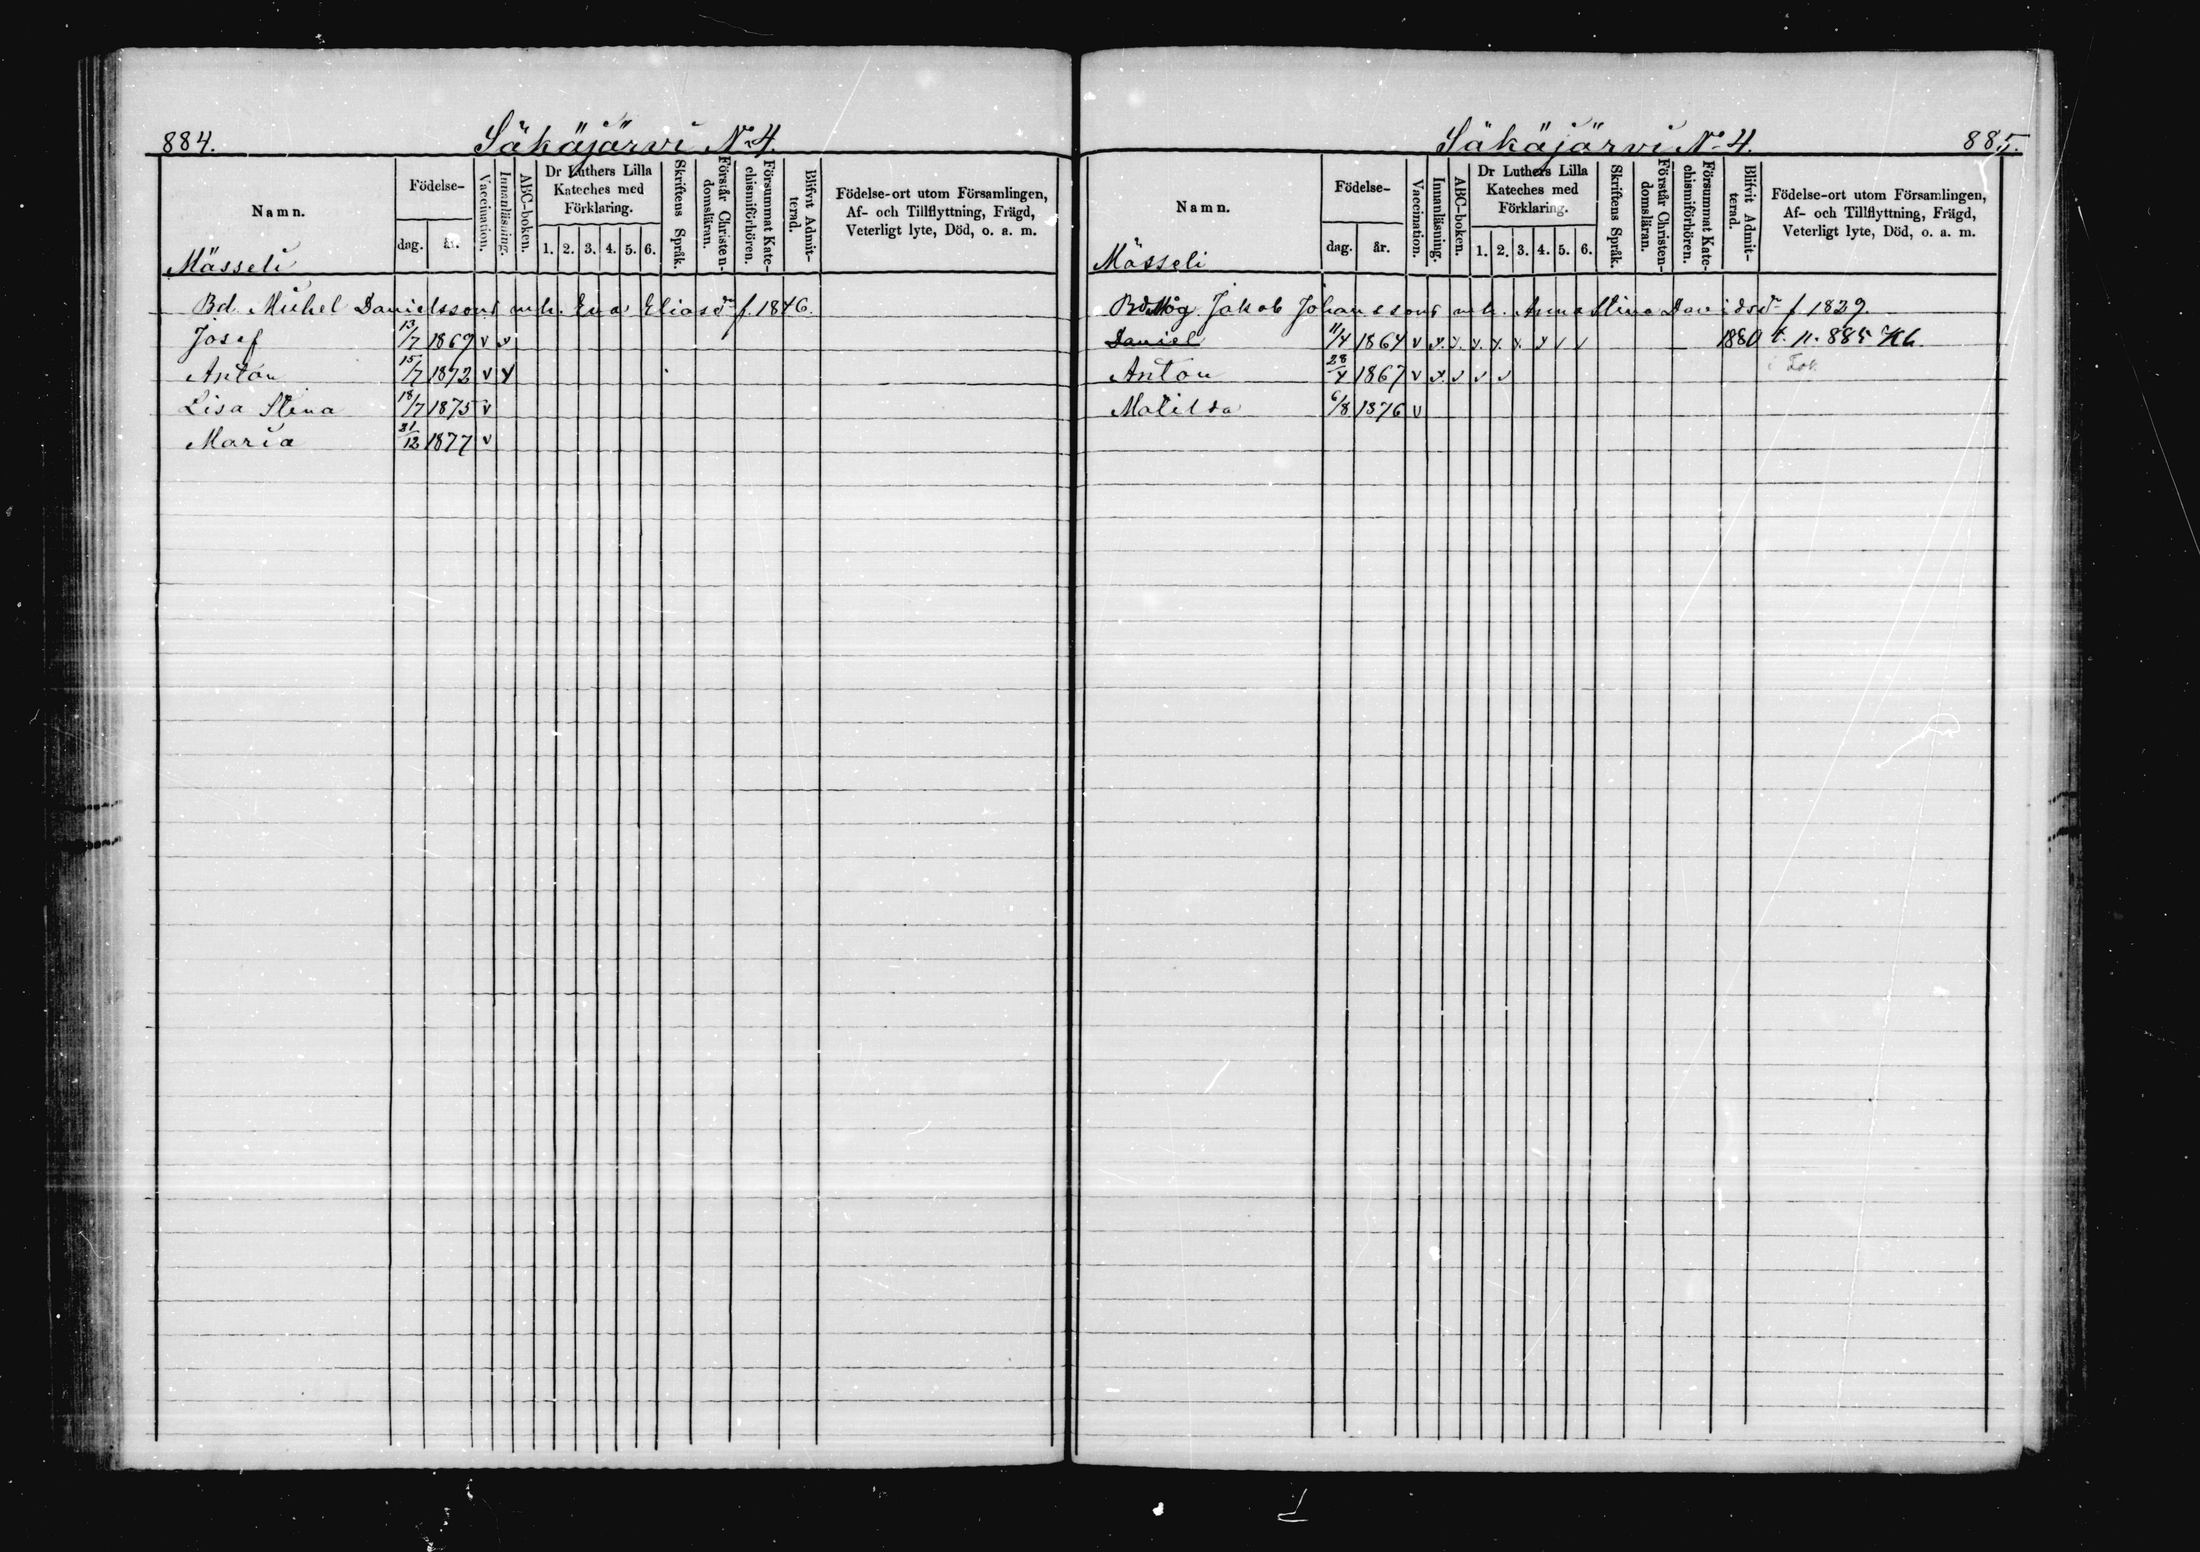 884.
Säkäjärvi No 4.
Namn.
Födelse-
dag. år.
Vaccination.
Innanläsning.
ABC-boken.
Dr Luthers Lilla
Kateches med
Förklaring.
1. 2. 3. 4. 5. 6.
Skriftens Språk.
Förstår Christen-
domsläran.
Försummat Kate-
chismiförhören.
Blifvit Admit-
terad.
Födelse-ort utom Församlingen,
Af- och Tillflyttning, Frägd,
Veterligt lyte, Död, o. a. m.
Mässeli
Bd. Michel Danielssons m h. Eva Eliasdr f. 1846.
Josef 13/7 1869 v v
Anton 15/7 1872 v v
Lisa Stina 18/7 1875 v
Maria 21/12 1877 v
Säkäjärvi No 4.
885.
Namn.
Födelse-
dag. år.
Vaccination.
Innanläsning.
ABC-boken.
Dr Luthers Lilla
Kateches med
Förklaring.
1. 2. 3. 4. 5. 6.
Skriftens Språk.
Förstår Christen-
domsläran.
Försummat Kate-
chismiförhören.
Blifvit Admit-
terad.
Födelse-ort utom Församlingen,
Af- och Tillflyttning, Frägd,
Veterligt lyte, Död, o. a. m.
Mässeli
Bd Måg Jakob Johanssons m h. Anna Stina Davidsdr f 1839.
Daniel 11/4 1864 v v. v. v. v. v. v v v 1880 t. p. 885 Kb.
Anton 28/4 1867 v v. v v v
Matilda 6/8 1876 v